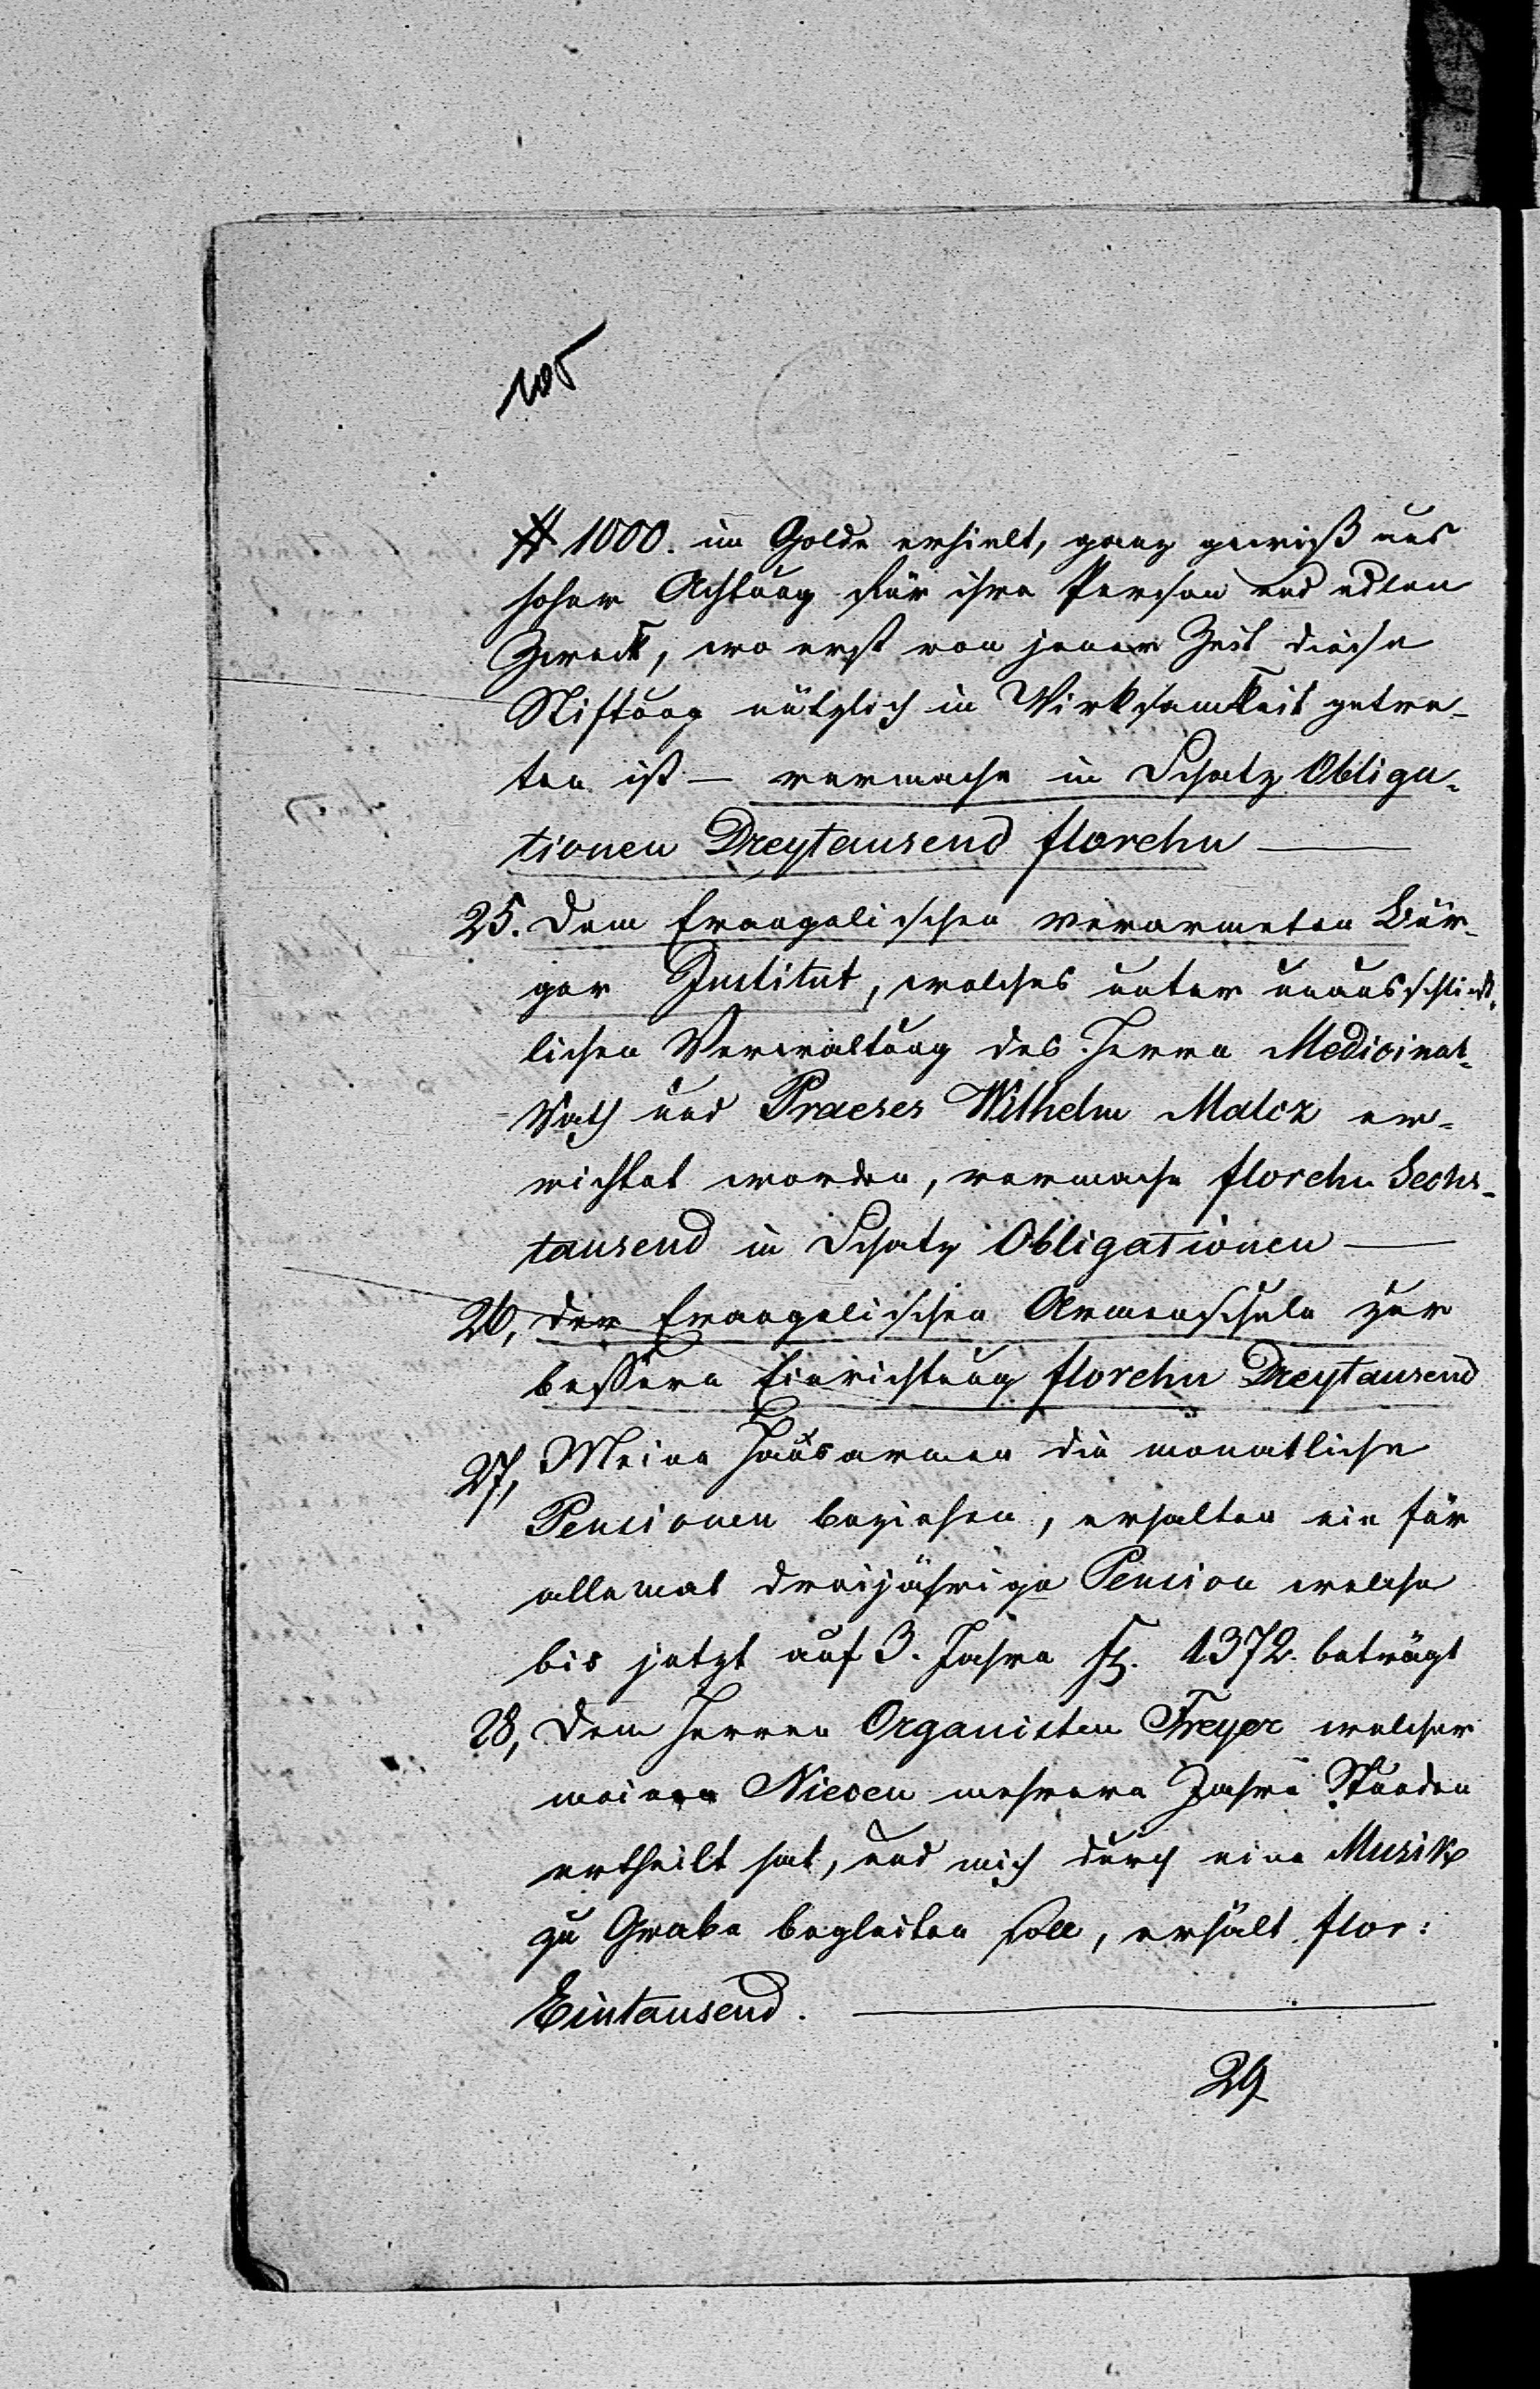 105
# 1000. im Golde erhielt, ganz gewiß aus
hoher Achtung für ihre Person und edlen
Zweck, wo erst von jener Zeit diese
Stiftung nützlich in Wirksamkeit getre-
ten ist — vermache in Schatz Obliga-
tionen Dreytausend florehn —
25. Dem Evangelischen verarmeten Bür-
ger Institut, welches unter
lichen Verwaltung des Herrn Medicinal-
Rath und Praeses Wilhelm Malcz er-
richtet worden, vermache florehn Sechs-
tausend in Schatz Obligationen —
26, der Evangelischen Armenschule zur
beßern Einrichtung florehn Dreytausend
27, Meine Hausarmen die monatliche
Pensionen beziehen, erhalten ein für
allemal dreijährige Pension welche
bis jetzt auf 3. Jahre fl. 1372 beträgt
28, Dem Herren Organisten Freyer welcher
meinen Niecen mehrere Jahre Stunden
ertheilt hat, und mich durch eine Musik
zu Grabe begleiten soll, erhält flor:
Eintausend. —
29